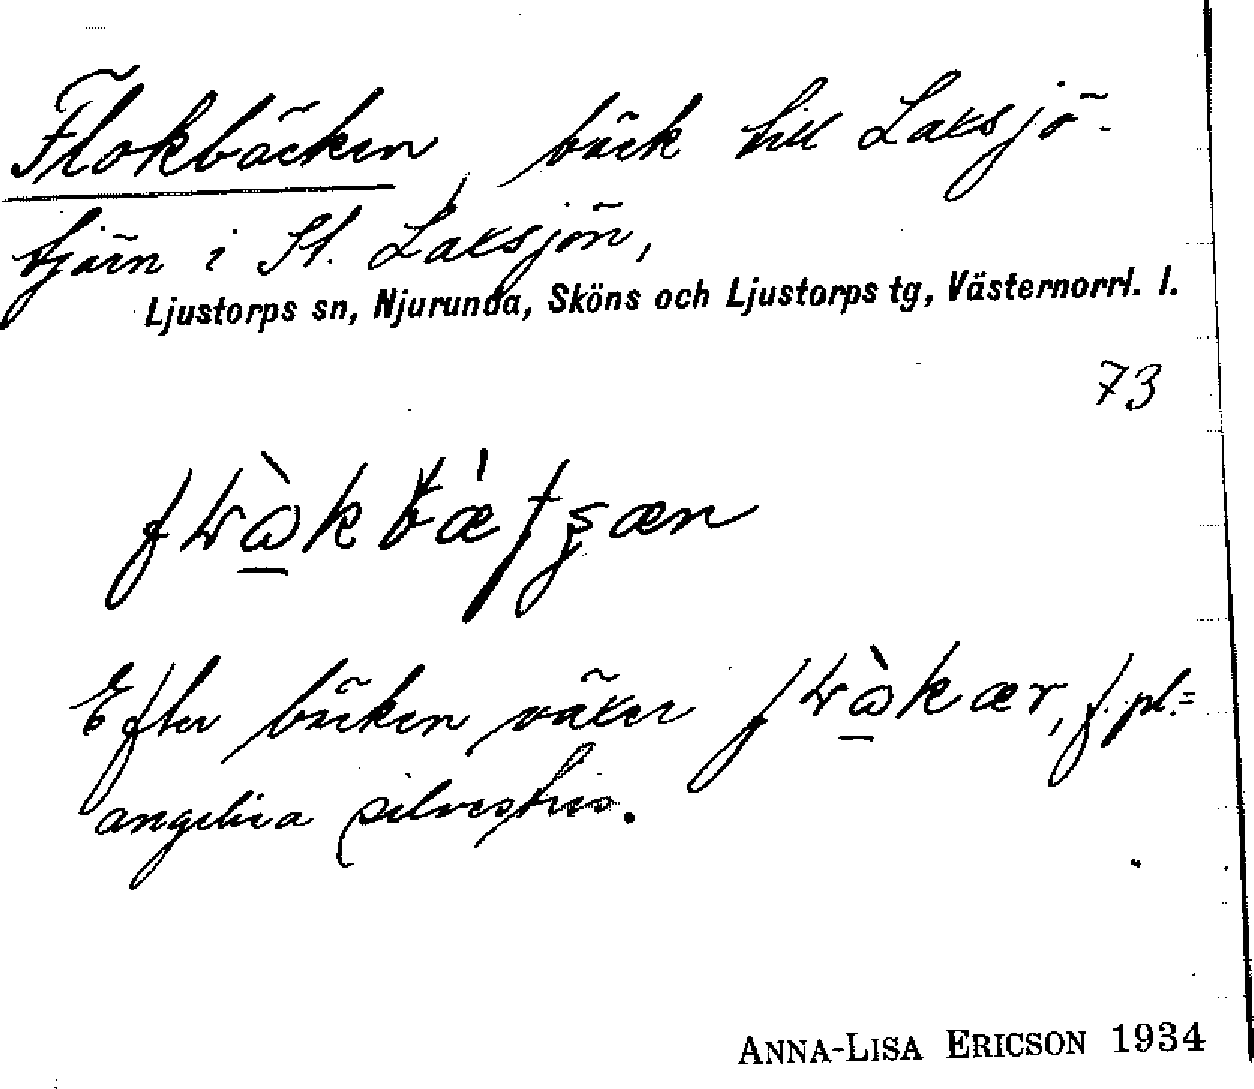 Flokbäcken, bäck till Laxsjö-
tjärn i St. Laxsjön,
Ljustorps sn, Njurunda, Sköns och Ljustorps tg, Västernorrl. l.
73
Efter bäcken växer f. pl. =
angelica silvestris.
ANNA-LISA ERICSON 1934